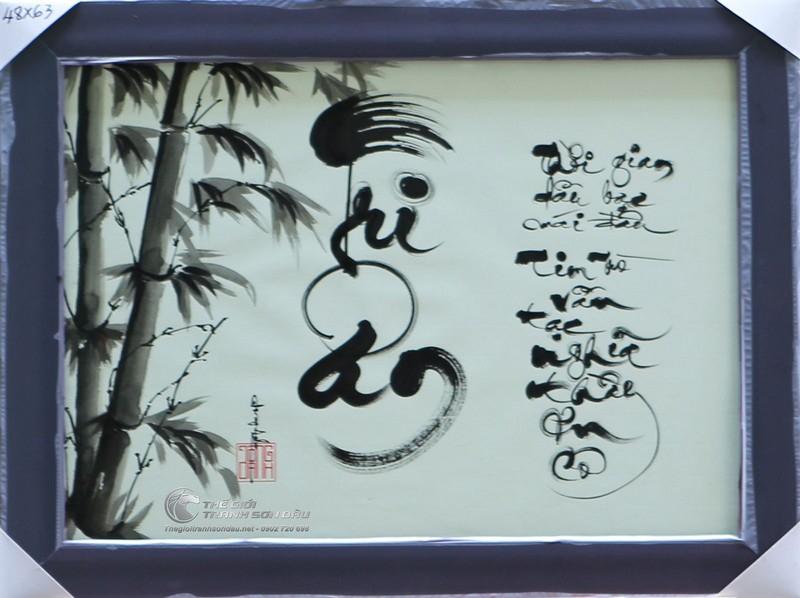 48X63
Tri
Ân
Thời gian
dẫu bạc
mái đầu
Tim trò
vẫn
tạc
nghĩa
thầy
ơn
Cô
THẾ GIỚI
TRANH SƠN DẦU
Thegioitranhsondau.net - 0902 720